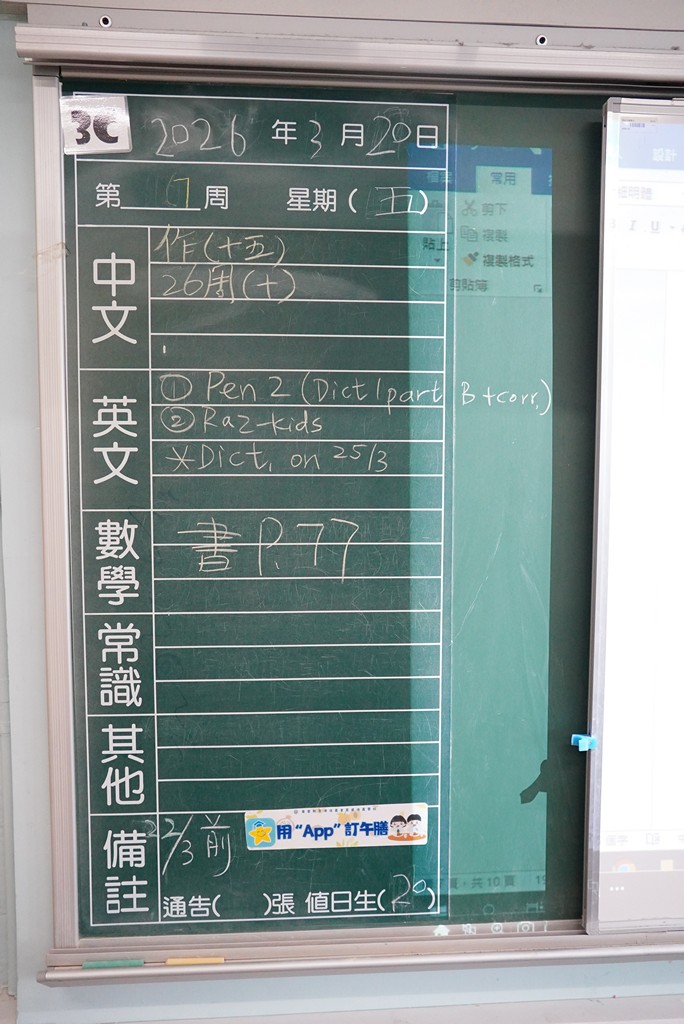 3C
2026年3月20日
第17周 星期(五)
中文
作(十五)
26周(十)
英文
① Pen 2 (Dict 1 part B + corr.)
② Raz-kids
*Dict. on 25/3
數學
書 P.77
常識
其他
備註
22/3前
用“App”訂午膳
通告( )張 值日生(20)
常用
設計
剪下
複製
貼上
複製格式
剪貼簿
細明體
頁，共10頁